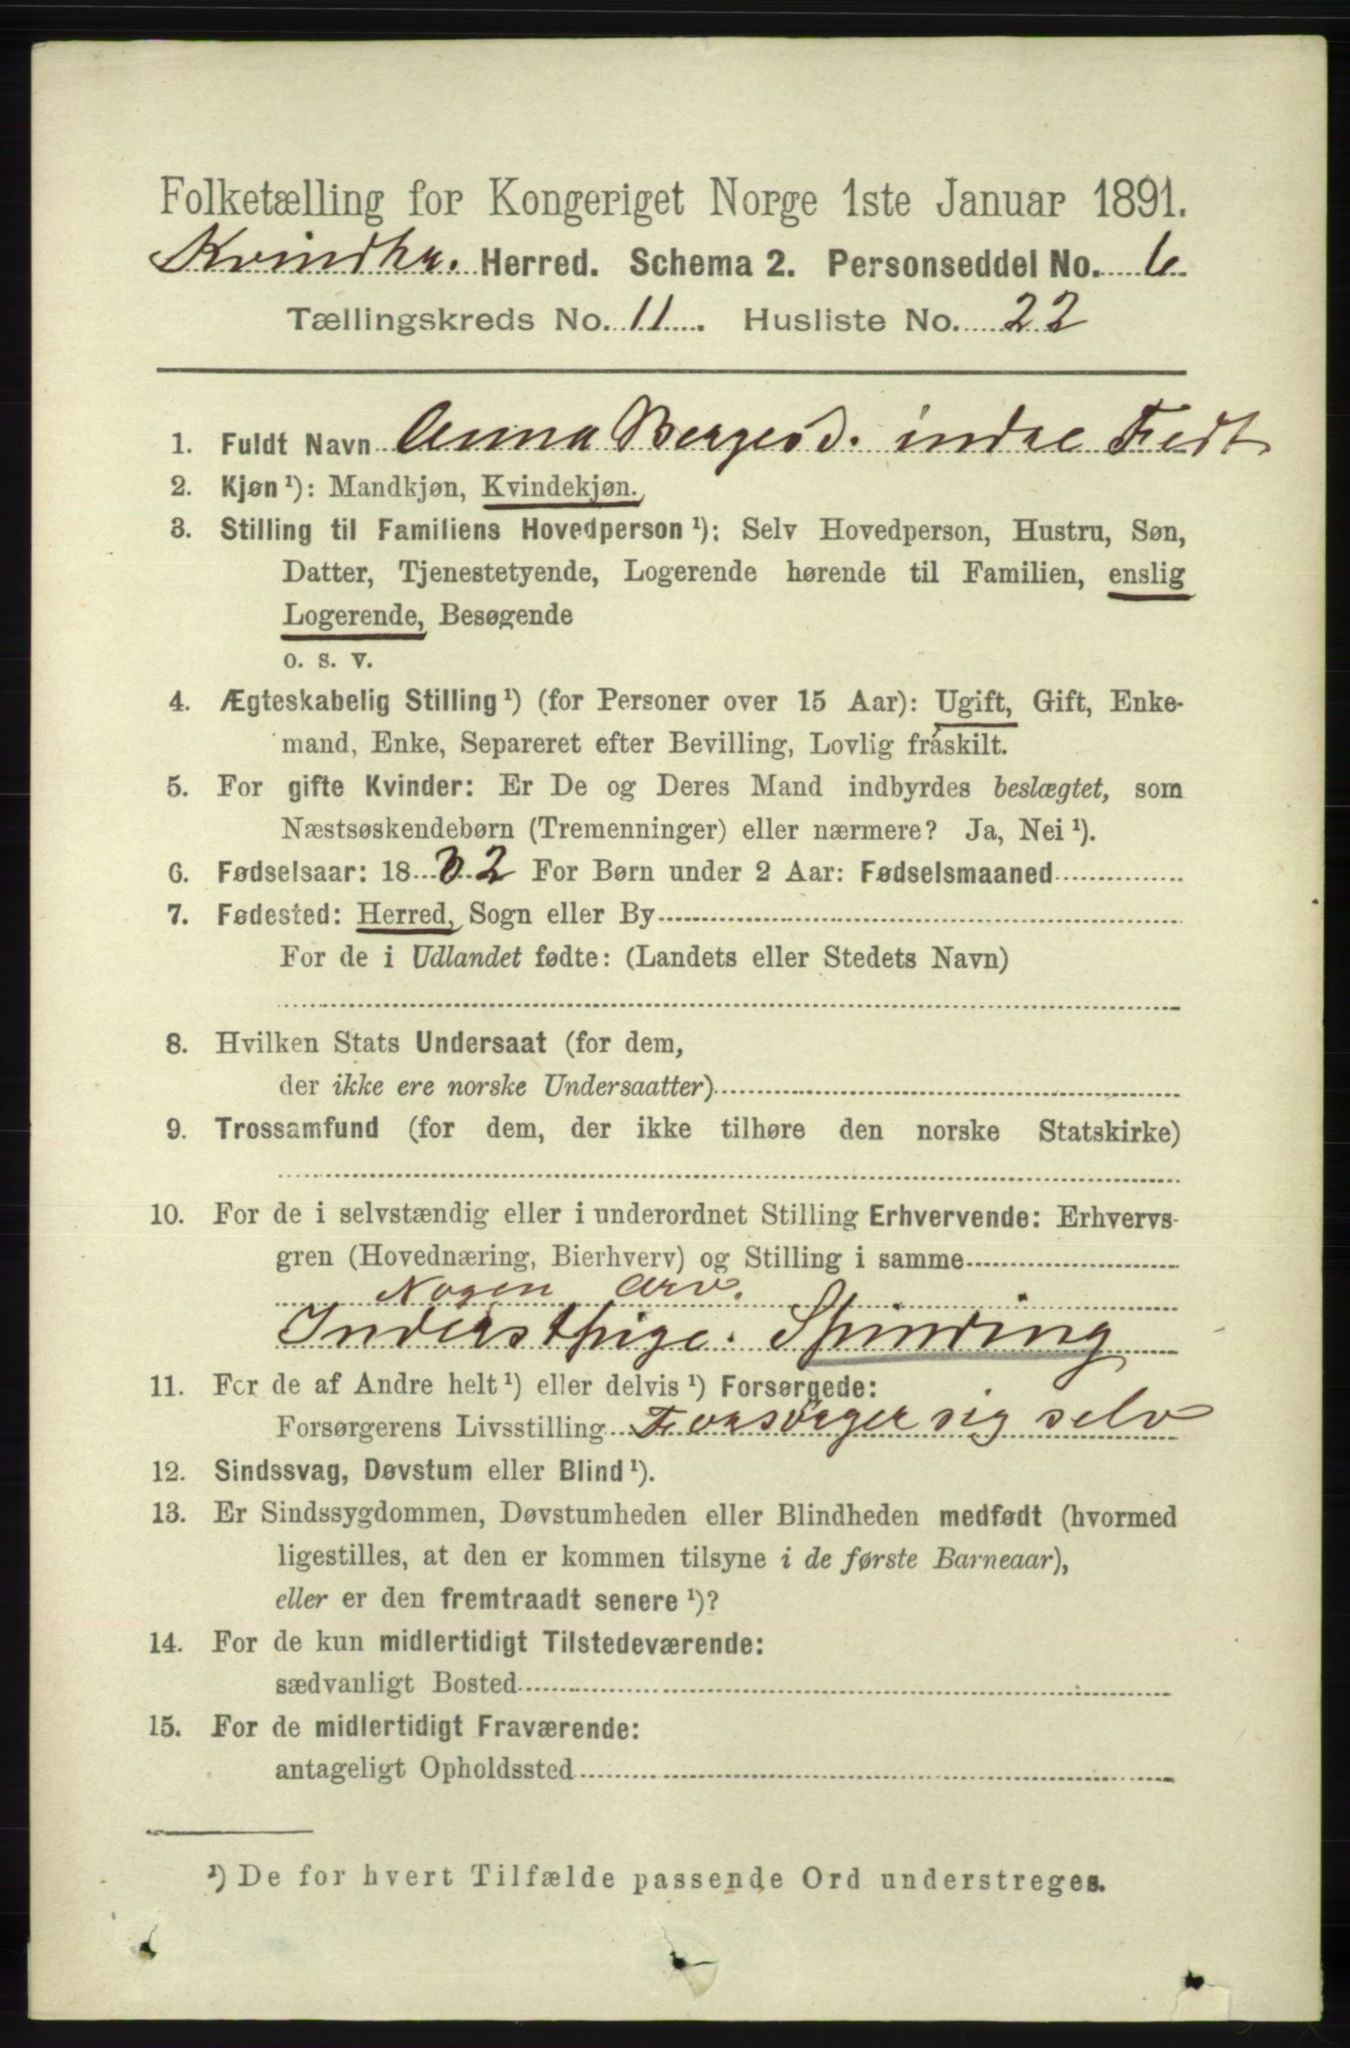 Folketælling for Kongeriget Norge 1ste Januar 1891.
Kvindhr. Herred. Schema 2. Personseddel No. 6
Tællingskreds No. 11. Husliste No. 22
1. Fuldt Navn Anna Bergesd. indre Fedt
2. Kjøn ¹): Mandkjøn, Kvindekjøn.
3. Stilling til Familiens Hovedperson ¹): Selv Hovedperson, Hustru, Søn,
Datter, Tjenestetyende, Logerende hørende til Familien, enslig
Logerende, Besøgende
o. s. v.
4. Ægteskabelig Stilling ¹) (for Personer over 15 Aar): Ugift, Gift, Enke-
mand, Enke, Separeret efter Bevilling, Lovlig fraskilt.
5. For gifte Kvinder: Er De og Deres Mand indbyrdes beslægtet, som
Næstsøskendebørn (Tremenninger) eller nærmere? Ja, Nei ¹).
6. Fødselsaar: 1832 For Børn under 2 Aar: Fødselsmaaned
7. Fødested: Herred, Sogn eller By
For de i Udlandet fødte: (Landets eller Stedets Navn)
8. Hvilken Stats Undersaat (for dem,
der ikke ere norske Undersaatter)
9. Trossamfund (for dem, der ikke tilhøre den norske Statskirke)
10. For de i selvstændig eller i underordnet Stilling Erhvervende: Erhvervs-
gren (Hovednæring, Bierhverv) og Stilling i samme
Nogen Arv.
Inderstpige. Spinding
11. For de af Andre helt ¹) eller delvis ¹) Forsørgede:
Forsørgerens Livsstilling Forsørger sig selv
12. Sindssvag, Døvstum eller Blind ¹).
13. Er Sindssygdommen, Døvstumheden eller Blindheden medfødt (hvormed
ligestilles, at den er kommen tilsyne i de første Barneaar),
eller er den fremtraadt senere ¹)?
14. For de kun midlertidigt Tilstedeværende:
sædvanligt Bosted
15. For de midlertidigt Fraværende:
antageligt Opholdssted
¹) De for hvert Tilfælde passende Ord understreges.